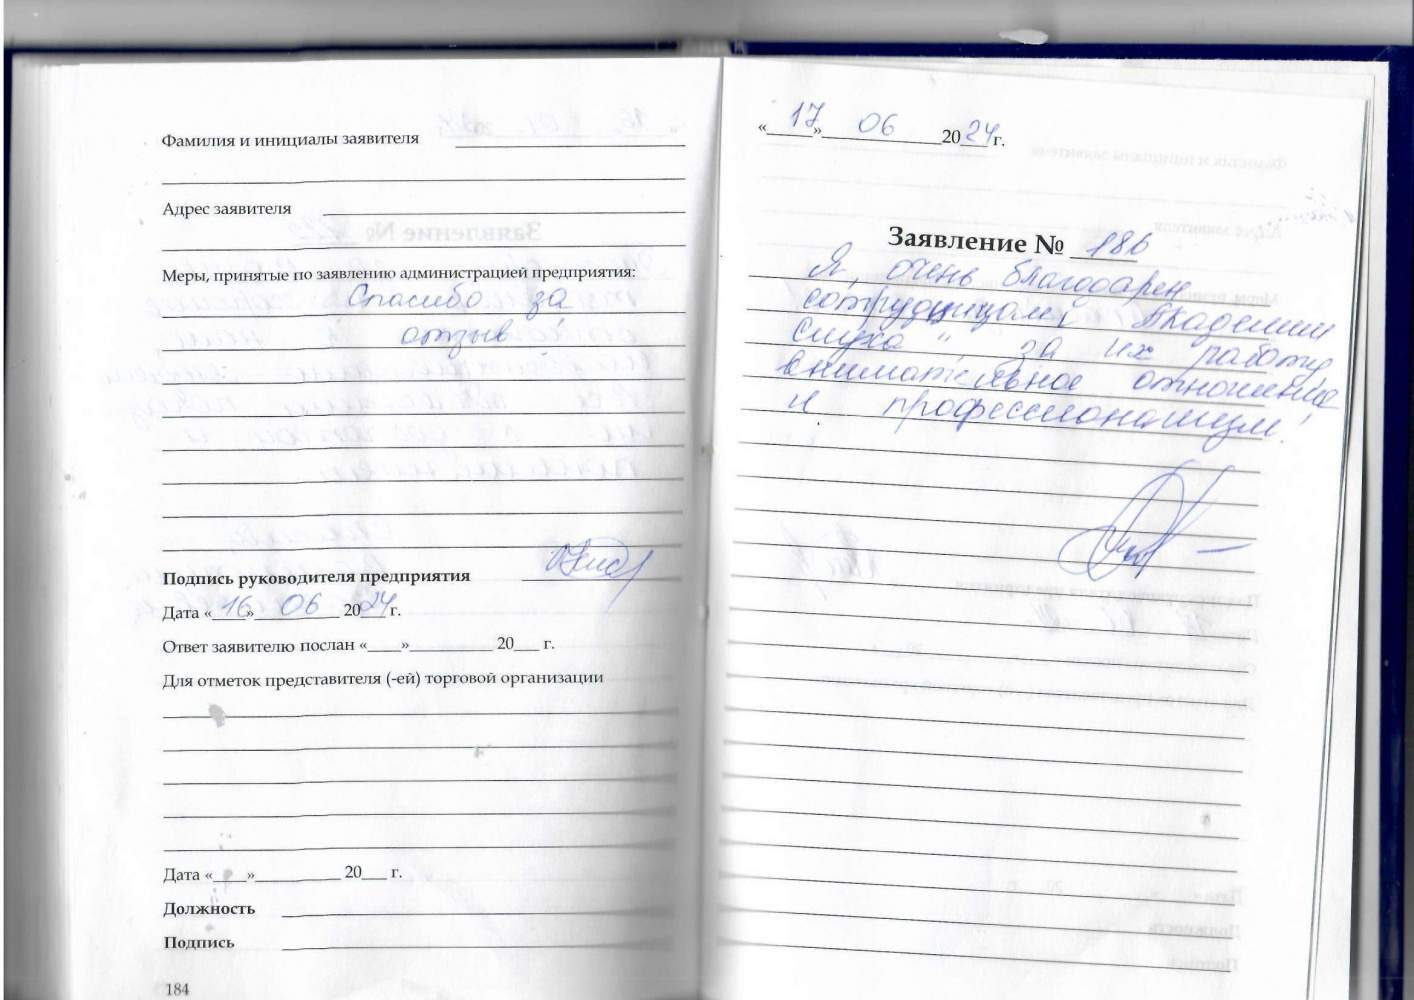 Фамилия и инициалы заявителя
Адрес заявителя
Меры, принятые по заявлению администрацией предприятия:
Спасибо за
отзыв
Подпись руководителя предприятия
Дата «16» 06 2024 г.
Ответ заявителю послан «____»__________ 20___ г.
Для отметок представителя (-ей) торговой организации
Дата «____»__________ 20___ г.
Должность
Подпись
184
«17» 06 2024 г.
Заявление № 186
Я, очень благодарен
сотрудницам, Академии
слуха", за их работу
внимательное отношение
и профессионализм!